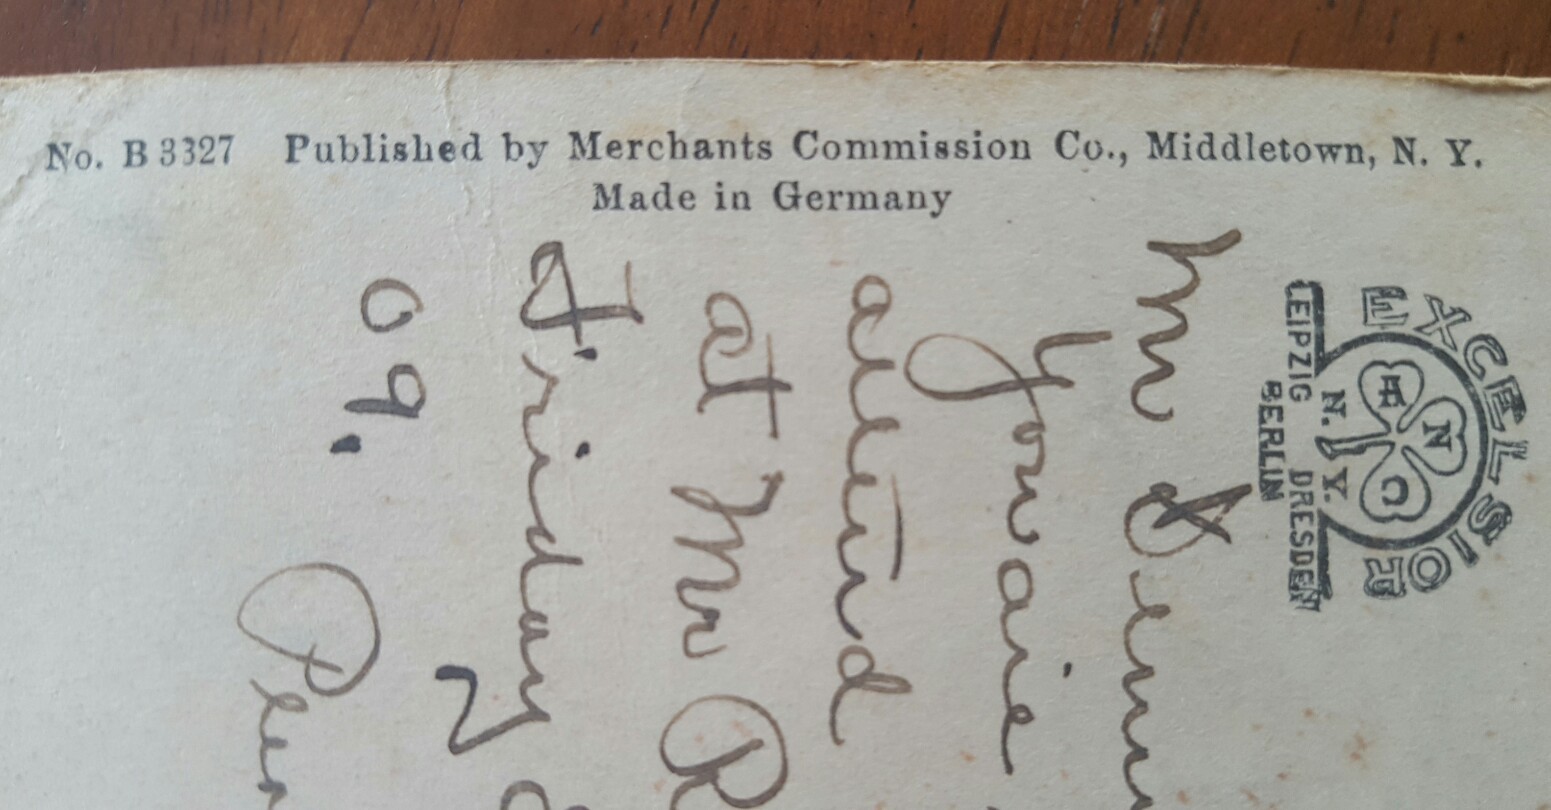 No. B 3327 Published by Merchants Commission Co., Middletown, N. Y.
Made in Germany
EXCELSIOR
A N C
N. Y.
LEIPZIG DRESDEN
BERLIN
Mr
You are
attend
at Mr R
Friday
09.